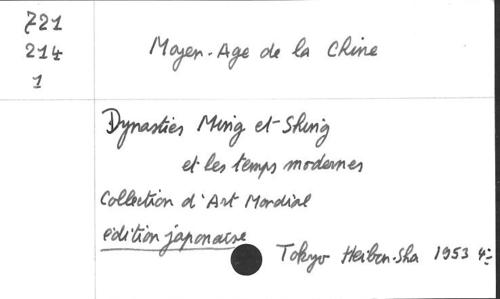 721
214
1
Moyen-Age de la Chine
Dynasties Ming et Shing
et les temps modernes
Collection d'Art Mondial
édition japonaise
Tokyo Heibon-Sha 1953 4º